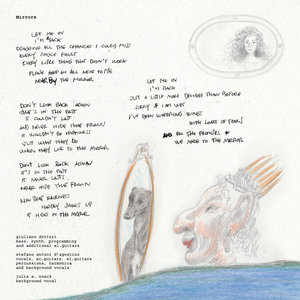 Mirrors
LET ME IN
I'M BACK
DRAGGING ALL THE CHANCES I COULD MISS
EVERY SINGLE FAULT
EVERY LITTLE THING THAT DIDN'T WORK
PLEASE KEEP EM ALL NEXT TO ME
NEARBY THE MIRROR
DON'T LOOK BACK AGAIN
THAT'S IN THE PAST
IT COULDN'T LAST
AND NEVER HIDE THAT FROWN
IT WOULDN'T BE HAPPINESS
JUST WHAT THEY DO
WHEN THEY LIE TO THE MIRROR
DON'T LOOK BACK AGAIN
IT'S IN THE PAST
IT NEVER LASTS
NEVER HIDE THAT FROWN
NOW THAT DARKNESS
HARDLY SHOWS UP
IT HIDES IN THE MIRROR
LET ME IN
I'M BACK
JUST A LITTLE MORE DECIDED THAN BEFORE
SORRY IF I AM WET
I'VE BEEN WRESTLING WAVES
WITH LOADS OF FEARS
AND ALL THE PROMISES
WE MADE TO THE MIRROR
giuliano dottori
bass, synth, programming
and additional el.guitars
stefano antoci d'agostino
vocals, ac.guitars, el.guitars
percussions, harmonica
and background vocals
julia a. noack
background vocal